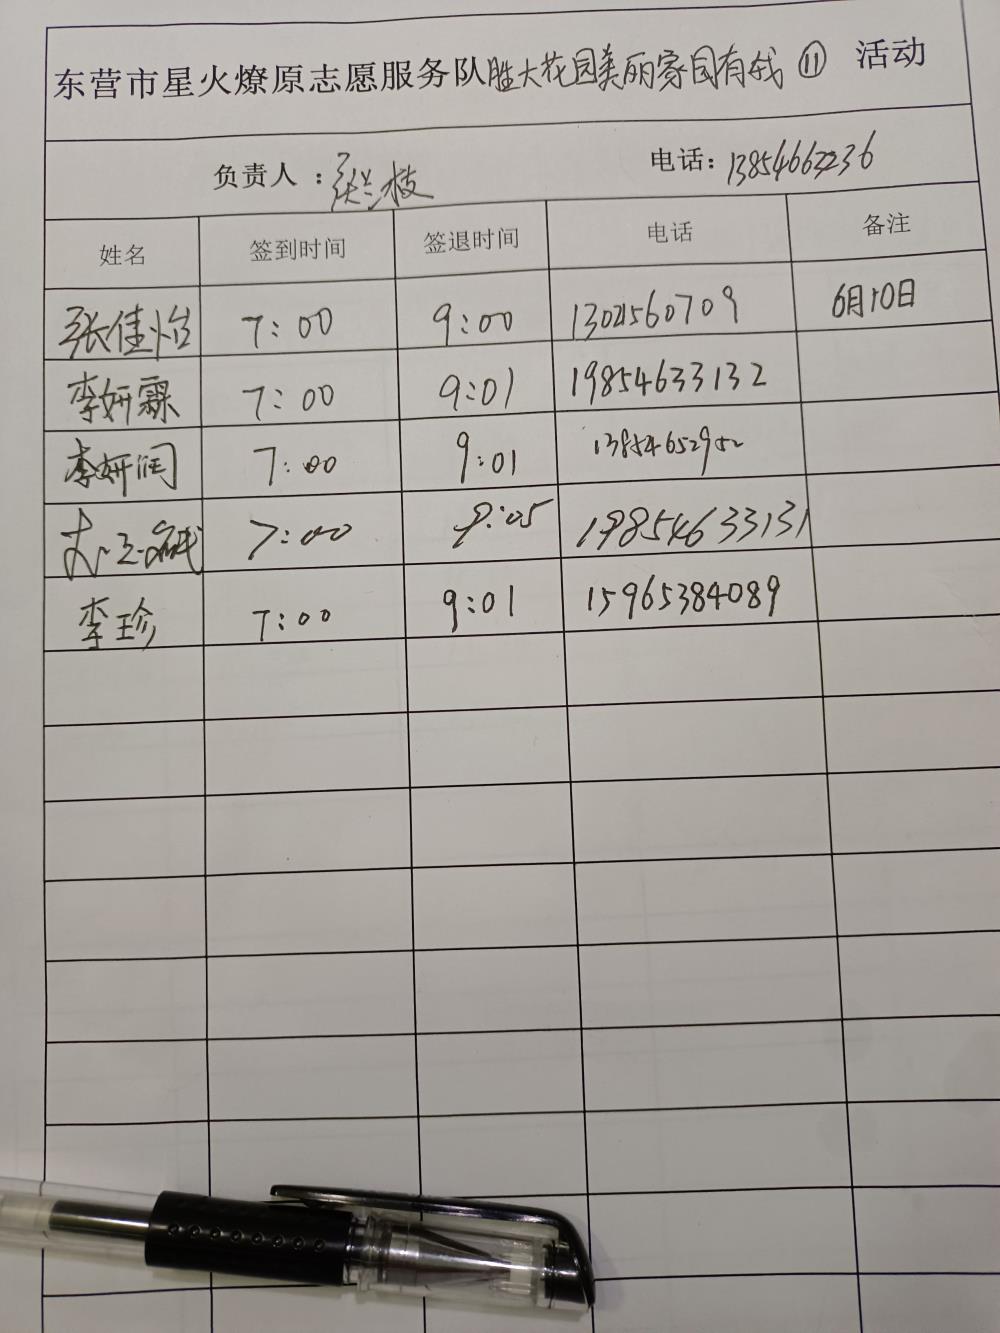 东营市星火燎原志愿服务队胜大花园美丽家园有我 ⑪ 活动
负责人：张兰枝 电话：13854662236
姓名 签到时间 签退时间 电话 备注
张佳怡 7:00 9:00 13021560709 6月10日
李妍霖 7:00 9:01 19854633132
李妍润 7:00 9:01 13854652952
7:00 9:05 19854633131
李珍 7:00 9:01 15965384089